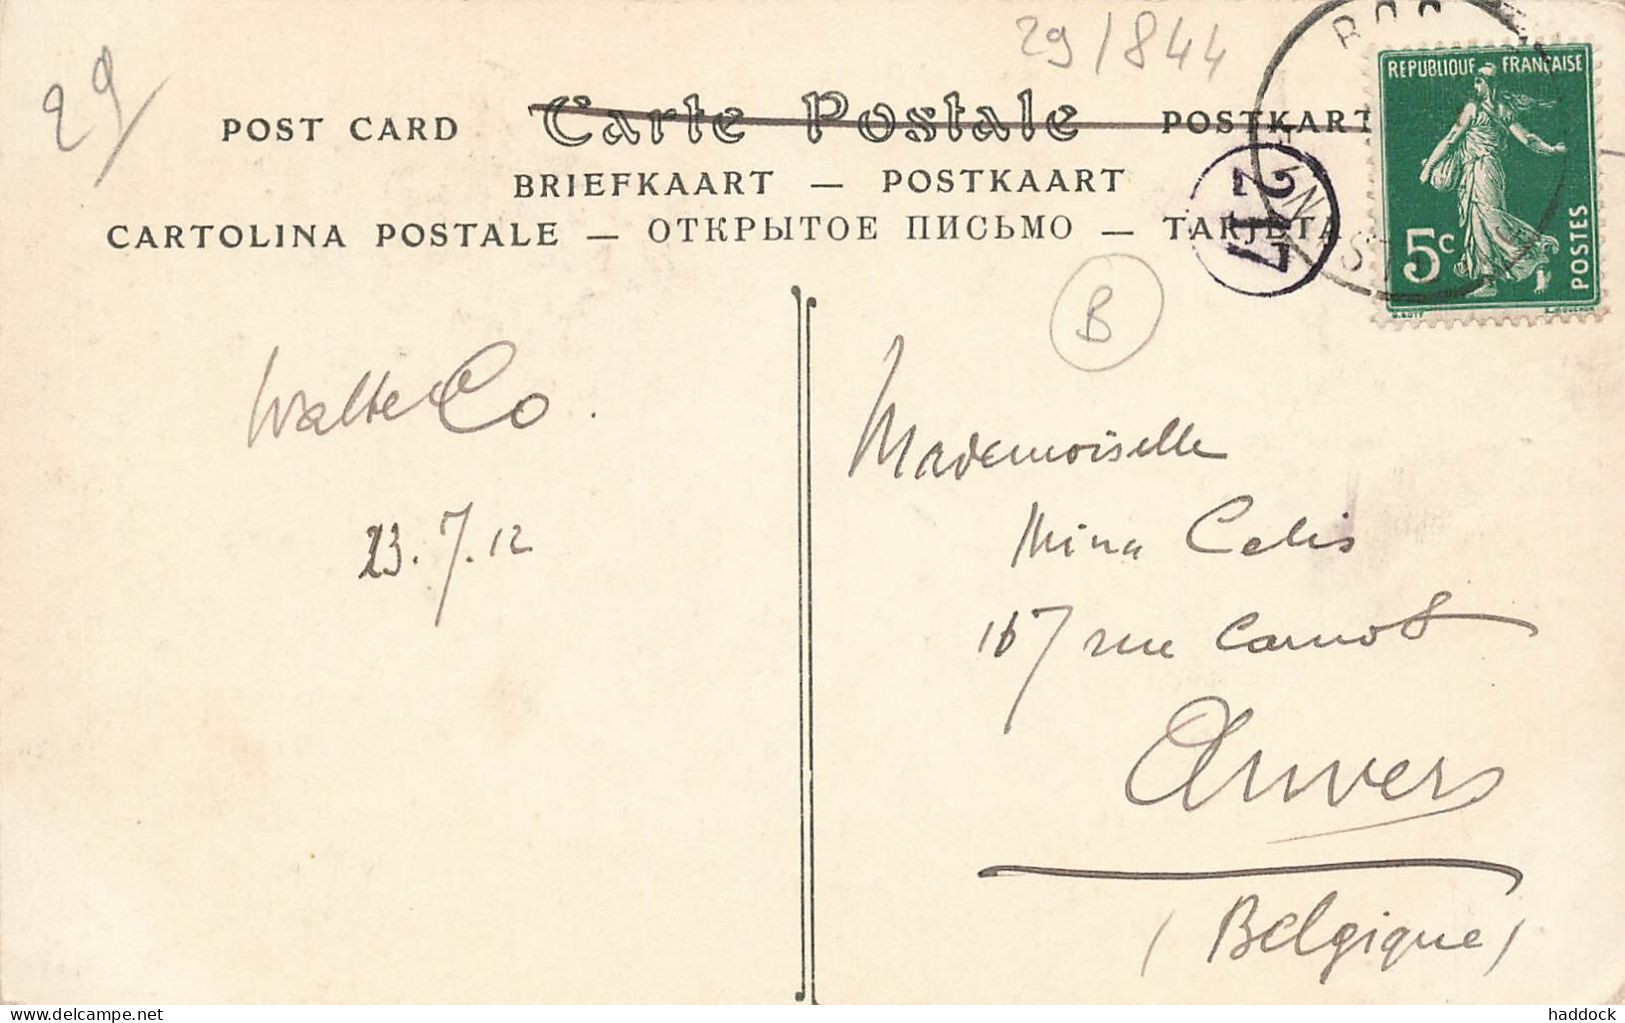 29
29/844
POST CARD Carte Postale POSTKART
BRIEFKAART — POSTKAART
CARTOLINA POSTALE — ОТКРЫТОЕ ПИСЬМО — TARJETA
217
REPUBLIQUE FRANÇAISE
5c
POSTES
B
Walter Co.
23.7.12
Mademoiselle
Mina Celis
167 rue Carnot
Anvers
(Belgique)
delcampe.net
haddock